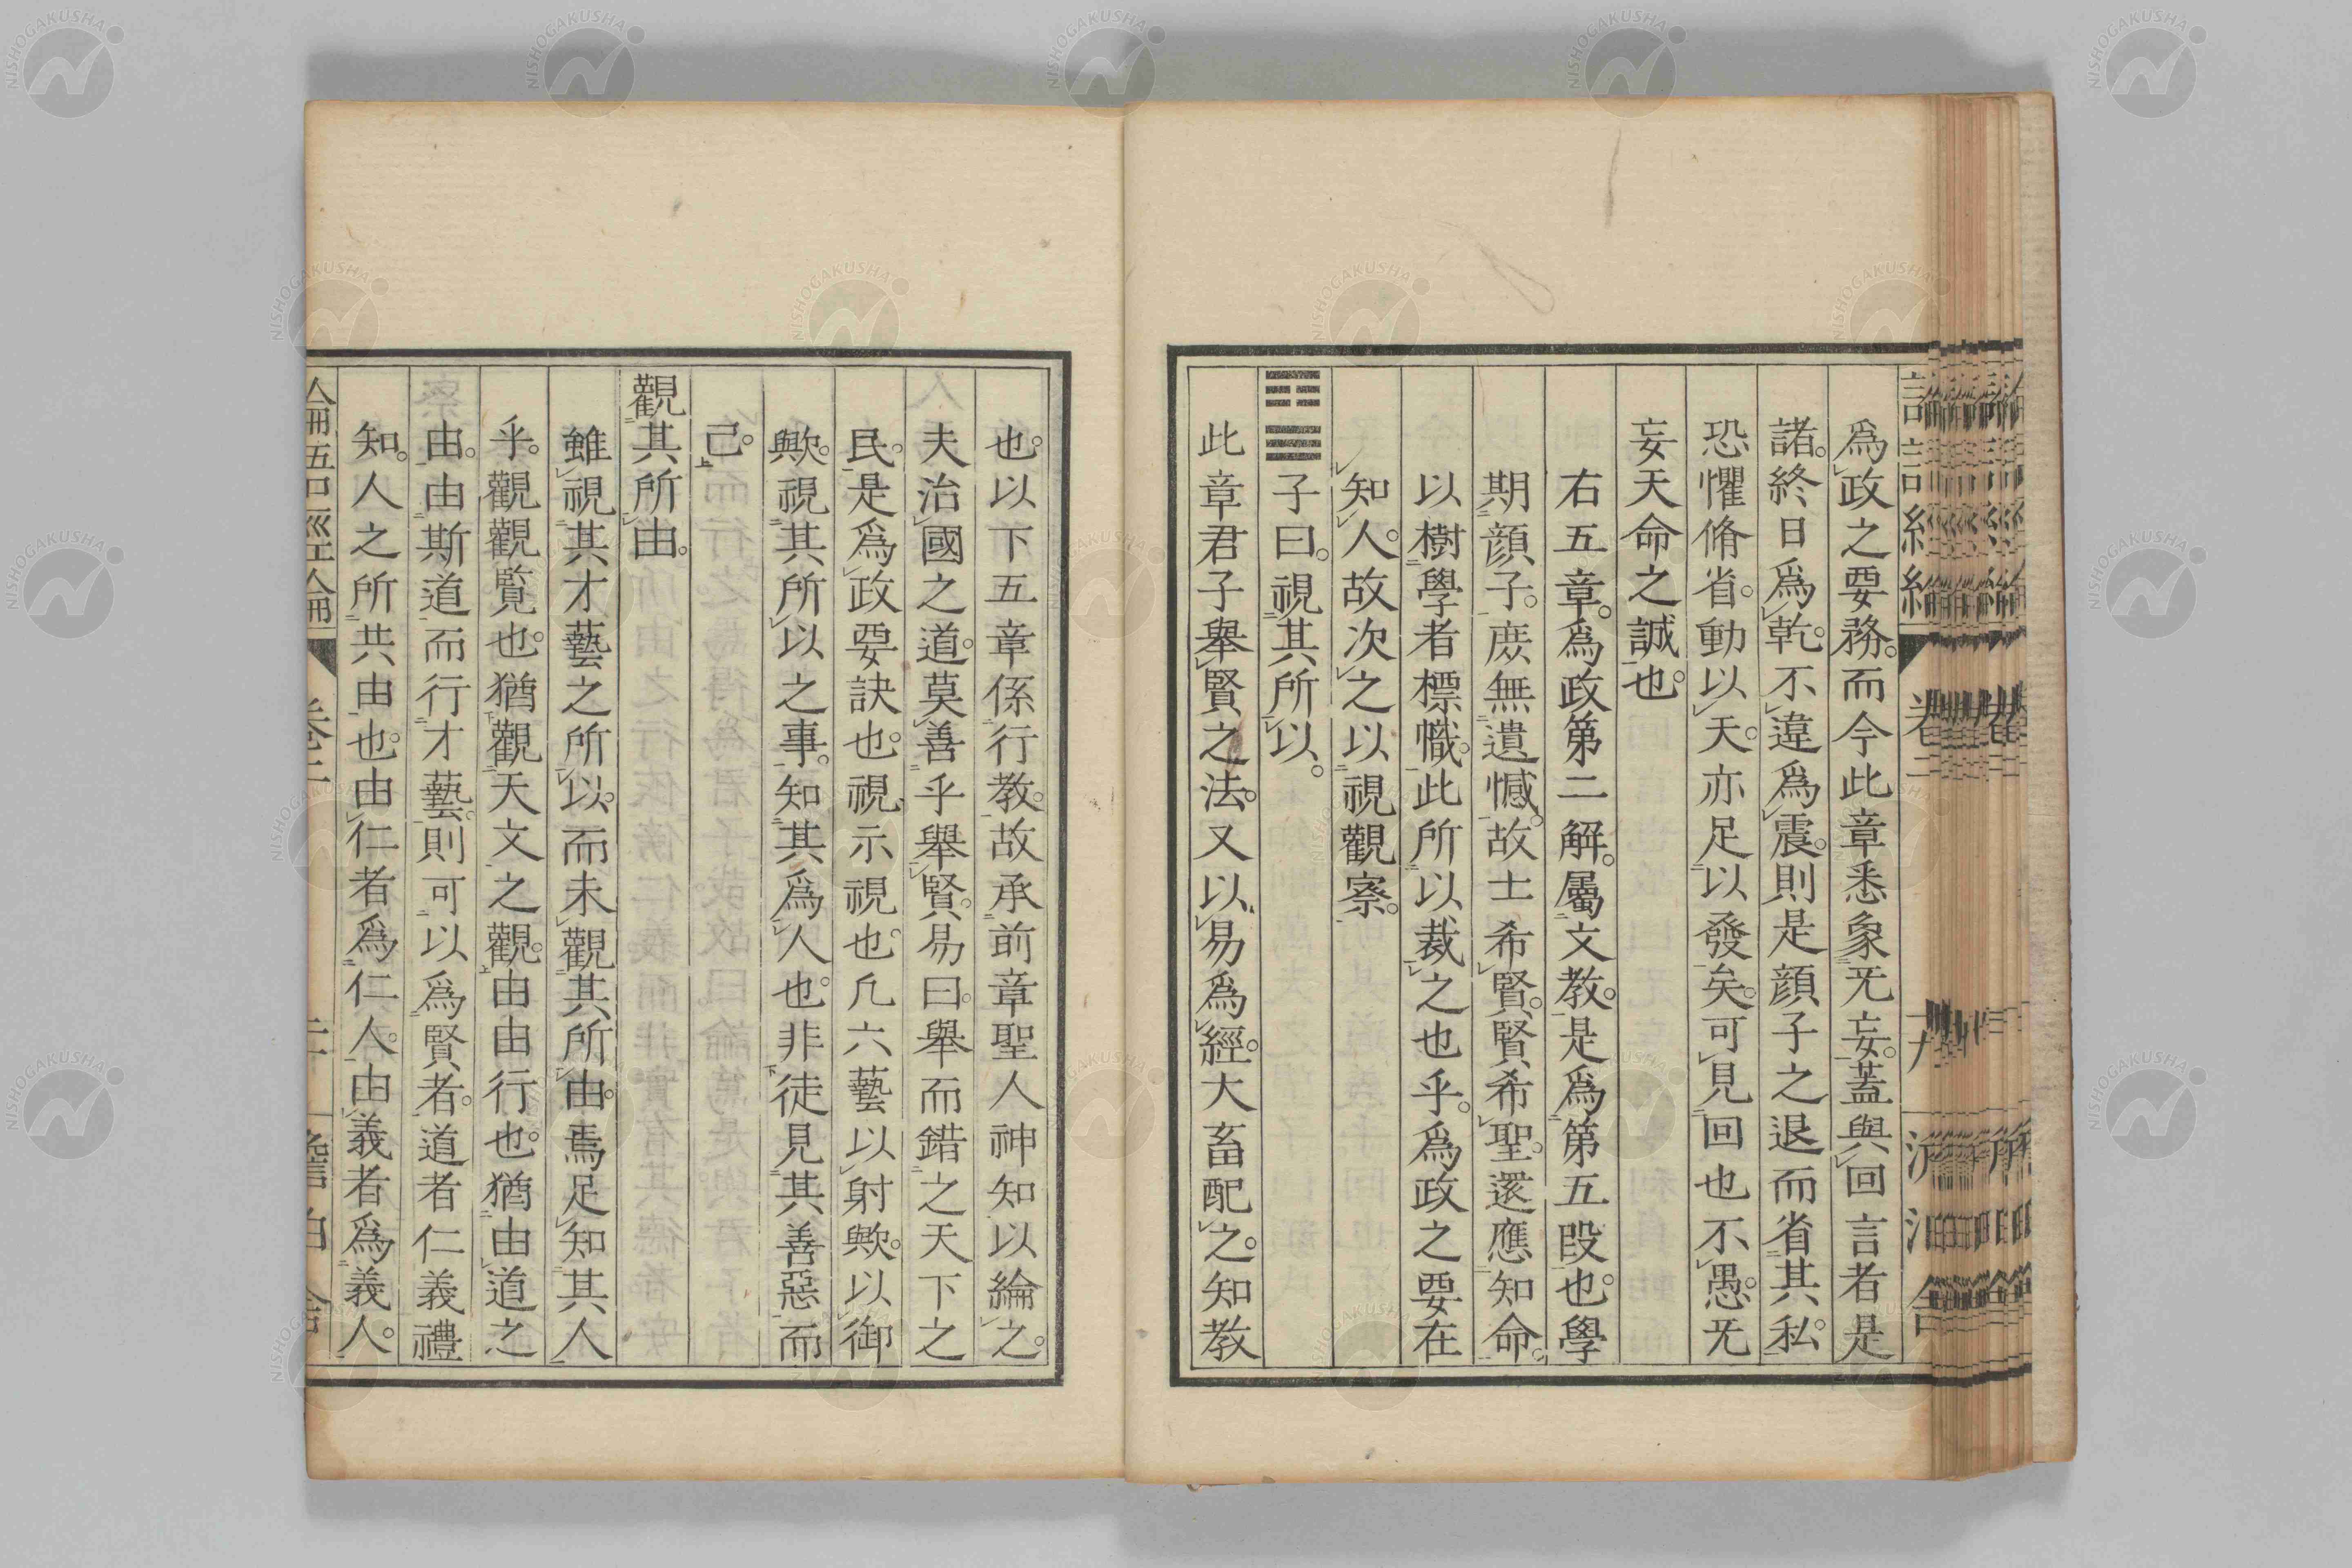 爲政之要務。而今此章悉象无妄。蓋與回言者是
諸。終日爲乾。不違爲震。則是顔子之退而省其私。
恐懼脩省。動以天。亦足以發矣。可見回也不愚。无
妄天命之誠也。
右五章。爲政第二解。屬文教。是爲第五段也。學
期顔子。庶無遺憾。故士希賢。賢希聖。還應知命。
以樹學者標幟。此所以裁之也乎。爲政之要在
知人。故次之以視觀察。
子曰。視其所以。
此章君子舉賢之法。又以易爲經。大畜配之。知教
也。以下五章係行教。故承前章聖人神知以綸之。
夫治國之道。莫善乎舉賢。易曰。舉而錯之天下之
民。是爲政要訣也。視、示視也。凡六藝以射歟。以御
歟。視其所以之事。知其爲人也。非徒見其善惡而
己。
觀其所由。
雖視其才藝之所以。而未觀其所由。焉足知其人
乎。觀觀覽也。猶觀天文之觀。由由行也。猶由道之
由。由斯道而行才藝。則可以爲賢者。道者仁義禮
知。人之所共由也。由仁者爲仁人。由義者爲義人。
論語經論 卷二
NISHOGAKUSHA